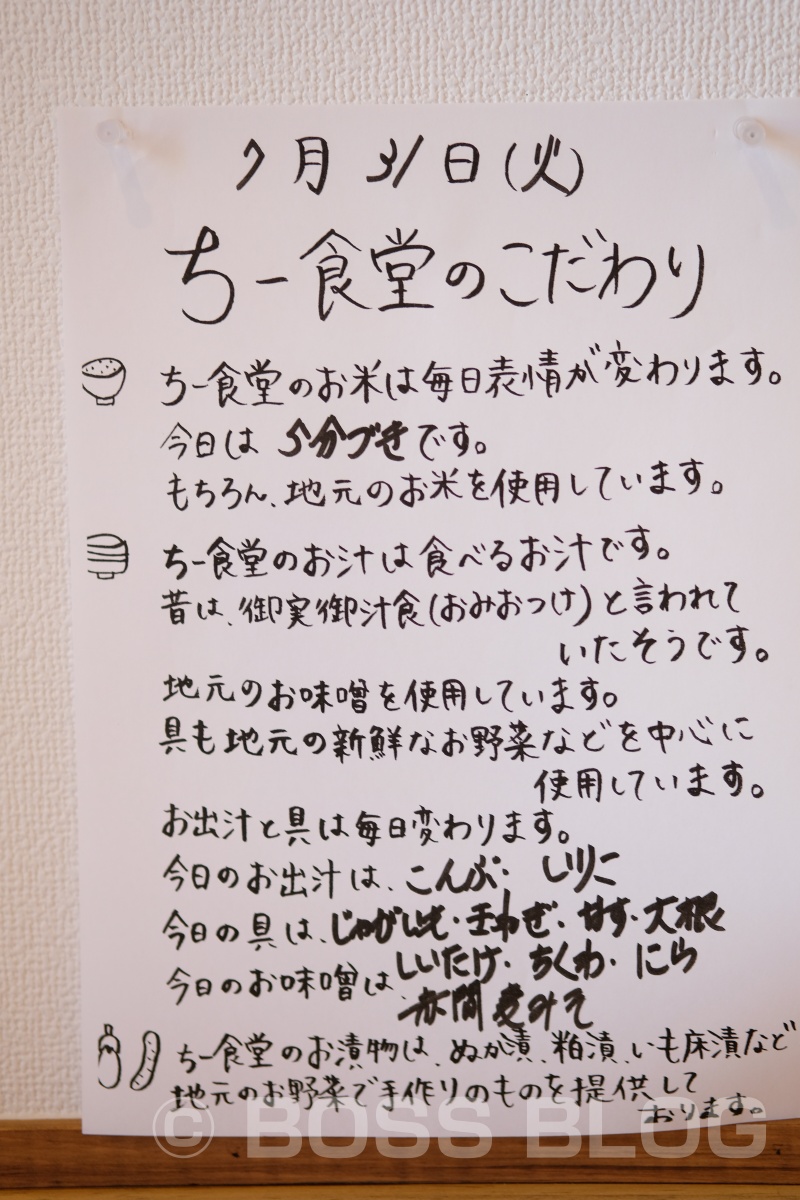 7月31日(火)
ちー食堂のこだわり
ちー食堂のお米は毎日表情が変わります。
今日は 5分づきです。
もちろん、地元のお米を使用しています。
ちー食堂のお汁は食べるお汁です。
昔は、御実御汁食(おみおつけ)と言われて
いたそうです。
地元のお味噌を使用しています。
具も地元の新鮮なお野菜などを中心に
使用しています。
お出汁と具は毎日変わります。
今日のお出汁は、こんぶ・いりこ
今日の具は、じゃがいも・玉ねぎ・なす・大根
しいたけ・ちくわ・にら
今日のお味噌は、赤間麦みそ
ちー食堂のお漬物は、ぬか漬、粕漬、いも床漬など
地元のお野菜で手作りのものを提供して
おります。
© BOSS BLOG